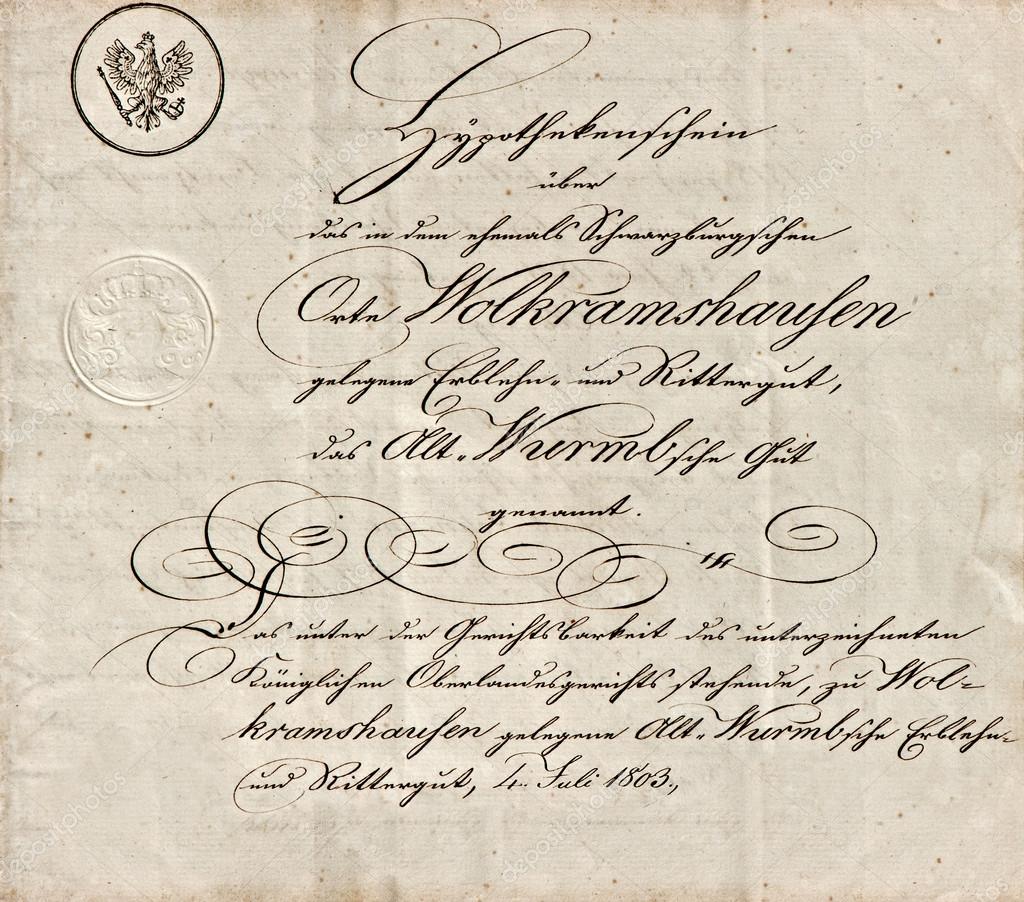 Hypothekenschein
über
das in dem ehemals Schwarzburgschen
Orte Wolkramshausen
gelegene Erblehn- und Rittergut,
das Alt-Wurmbsche Gut
genannt.
Das unter der Gerichtsbarkeit des unterzeichneten
Königlichen Oberlandesgerichts stehende, zu Wol-
kramshausen gelegene Alt-Wurmbsche Erblehn-
und Rittergut, 4. Juli 1803.,